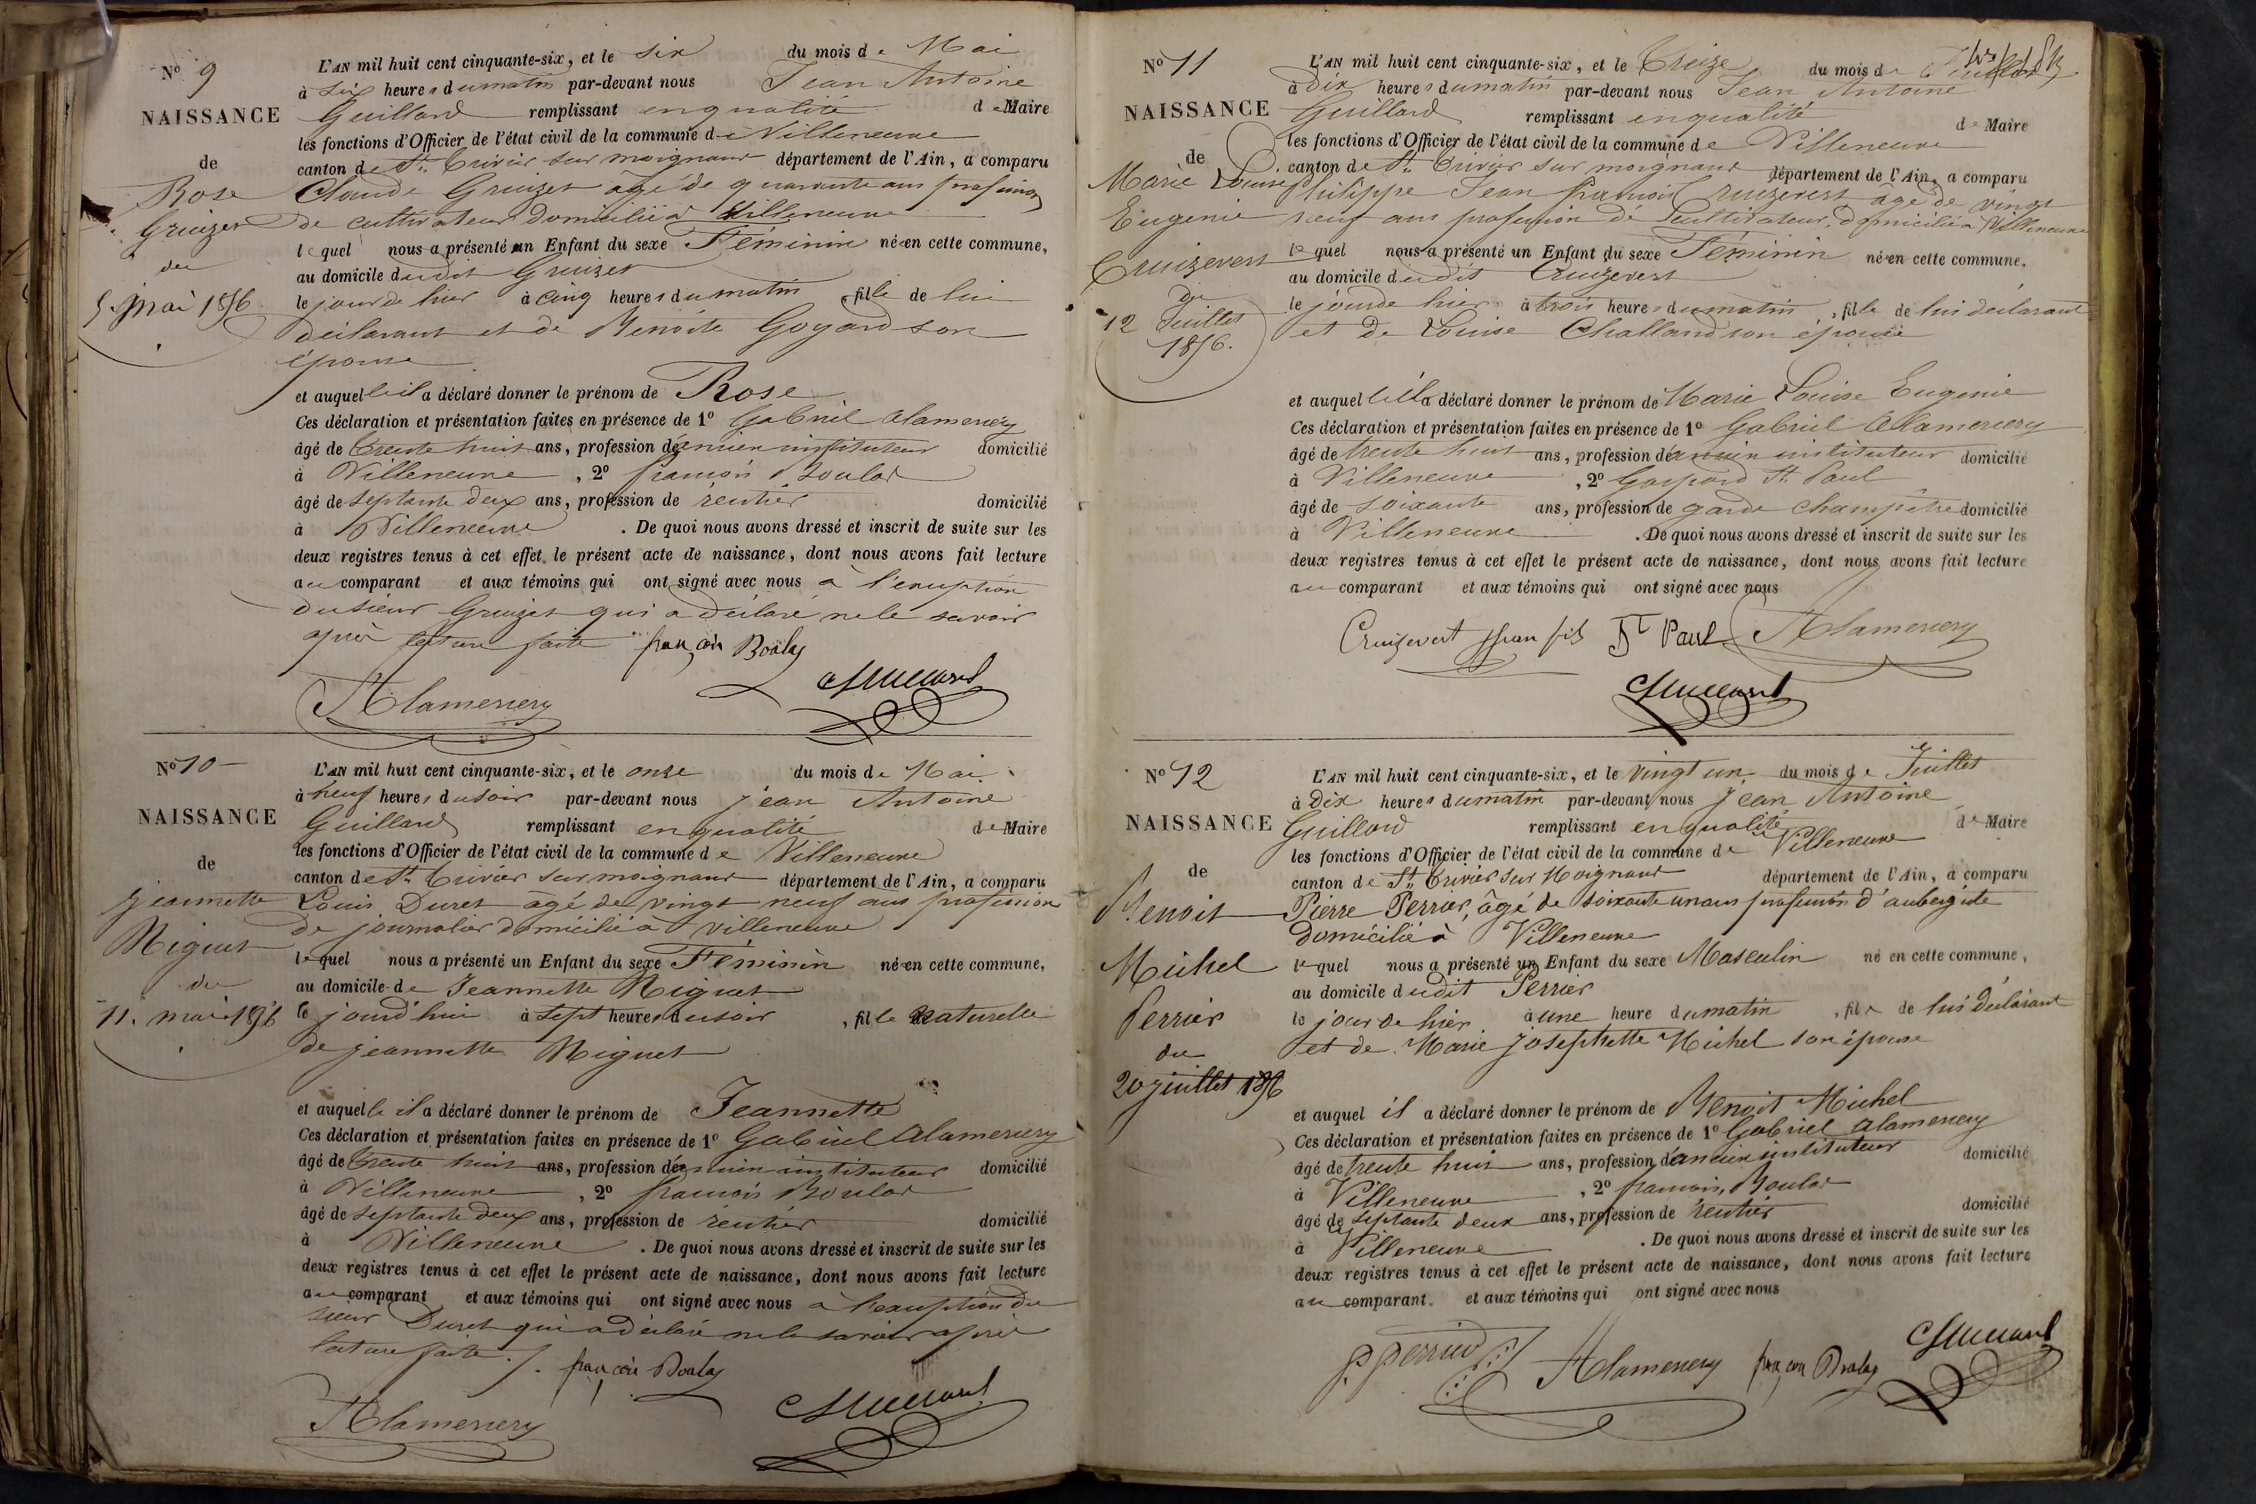 N° 9
NAISSANCE
de
Rose
Gruizer
du
5. mai 1856
L'AN mil huit cent cinquante-six, et le six du mois de Mai
à six heures du matin par-devant nous Jean Antoine
Guillard remplissant en qualité de Maire
les fonctions d'Officier de l'état civil de la commune de Villeneuve
canton de St. Trivier sur moignans département de l'Ain, a comparu
Claude Gruizer âgé de quarante ans profession
de cultivateur domicilié à Villeneuve
lequel nous a présenté un Enfant du sexe Féminin né en cette commune,
au domicile dudit Gruizer
le jour de hier à cinq heures du matin, fille de lui
déclarant et de Benoite Goyard son
épouse
et auquelle il a déclaré donner le prénom de Rose
Ces déclaration et présentation faites en présence de 1° Gabriel Alamercery
âgé de trente huit ans, profession d'ancien instituteur domicilié
à Villeneuve, 2° françois Boulas
âgé de septante deux ans, profession de rentier domicilié
à Villeneuve. De quoi nous avons dressé et inscrit de suite sur les
deux registres tenus à cet effet le présent acte de naissance, dont nous avons fait lecture
au comparant et aux témoins qui ont signé avec nous à l'exception
du sieur Gruizer qui a déclaré ne le savoir
après lecture faite françois Boulas
Alamercery Guillard
N° 10
NAISSANCE
de
Jeannette
Miguet
du
11. mai 1856
L'AN mil huit cent cinquante-six, et le onze du mois de Mai
à neuf heures du soir par-devant nous Jean Antoine
Guillard remplissant en qualité de Maire
les fonctions d'Officier de l'état civil de la commune de Villeneuve
canton de St. Trivier sur moignans département de l'Ain, a comparu
Louis Duret âgé de vingt neuf ans profession
de journalier domicilié à Villeneuve
lequel nous a présenté un Enfant du sexe Féminin né en cette commune,
au domicile de Jeannette Miguet
le jourd'hui à sept heures du soir, fille naturelle
de jeannette Miguet
et auquelle il a déclaré donner le prénom de Jeannette
Ces déclaration et présentation faites en présence de 1° Gabriel Alamercery
âgé de trente huit ans, profession d'ancien instituteur domicilié
à Villeneuve, 2° françois Boulas
âgé de septante deux ans, profession de rentier domicilié
à Villeneuve. De quoi nous avons dressé et inscrit de suite sur les
deux registres tenus à cet effet le présent acte de naissance, dont nous avons fait lecture
au comparant et aux témoins qui ont signé avec nous à l'exception du
sieur Duret qui a déclaré ne le savoir après
lecture faite. françois Boulas
Alamercery Guillard
N° 11
NAISSANCE
de
Marie Louise
Eugenie
Cruizevert
du
12 Juillet
1856.
L'AN mil huit cent cinquante-six, et le Treize du mois de Juillet
à Dix heures du matin par-devant nous Jean Antoine
Guillard remplissant en qualité de Maire
les fonctions d'Officier de l'état civil de la commune de Villeneuve
canton de St. Trivier sur moignans département de l'Ain, a comparu
Philippe Jean françois Cruizevert âgé de vingt
neuf ans profession de Cultivateur, domicilié à Villeneuve
lequel nous a présenté un Enfant du sexe Féminin né en cette commune,
au domicile dudit Cruizevert
le jour de hier à trois heures du matin, fille de lui déclarant
et de Louise Challand son épouse
et auquelle il a déclaré donner le prénom de Marie Louise Eugenie
Ces déclaration et présentation faites en présence de 1° Gabriel Alamercery
âgé de trente huit ans, profession d'ancien instituteur domicilié
à Villeneuve, 2° Gaspard St. Paul
âgé de soixante ans, profession de garde champêtre domicilié
à Villeneuve. De quoi nous avons dressé et inscrit de suite sur les
deux registres tenus à cet effet le présent acte de naissance, dont nous avons fait lecture
au comparant et aux témoins qui ont signé avec nous
Cruizevert fils St Paul Alamercery
Guillard
N° 12
NAISSANCE
de
Benoit
Michel
Perrier
du
20 juillet 1856
L'AN mil huit cent cinquante-six, et le vingt un du mois de Juillet
à Dix heures du matin par-devant nous Jean Antoine
Guillard remplissant en qualité de Maire
les fonctions d'Officier de l'état civil de la commune de Villeneuve
canton de St. Trivier sur Moignans département de l'Ain, a comparu
Pierre Perrier, âgé de soixante un ans profession d'aubergiste
domicilié à Villeneuve
lequel nous a présenté un Enfant du sexe Masculin né en cette commune,
au domicile dudit Perrier
le jour de hier à une heure du matin, fils de lui déclarant
et de Marie Josephette Michel son épouse
et auquel il a déclaré donner le prénom de Benoit Michel
Ces déclaration et présentation faites en présence de 1° Gabriel Alamercery
âgé de trente huit ans, profession d'ancien instituteur domicilié
à Villeneuve, 2° françois Boulas
âgé de septante deux ans, profession de rentier domicilié
à Villeneuve. De quoi nous avons dressé et inscrit de suite sur les
deux registres tenus à cet effet le présent acte de naissance, dont nous avons fait lecture
au comparant et aux témoins qui ont signé avec nous
P. Perrier Alamercery françois Boulas Guillard